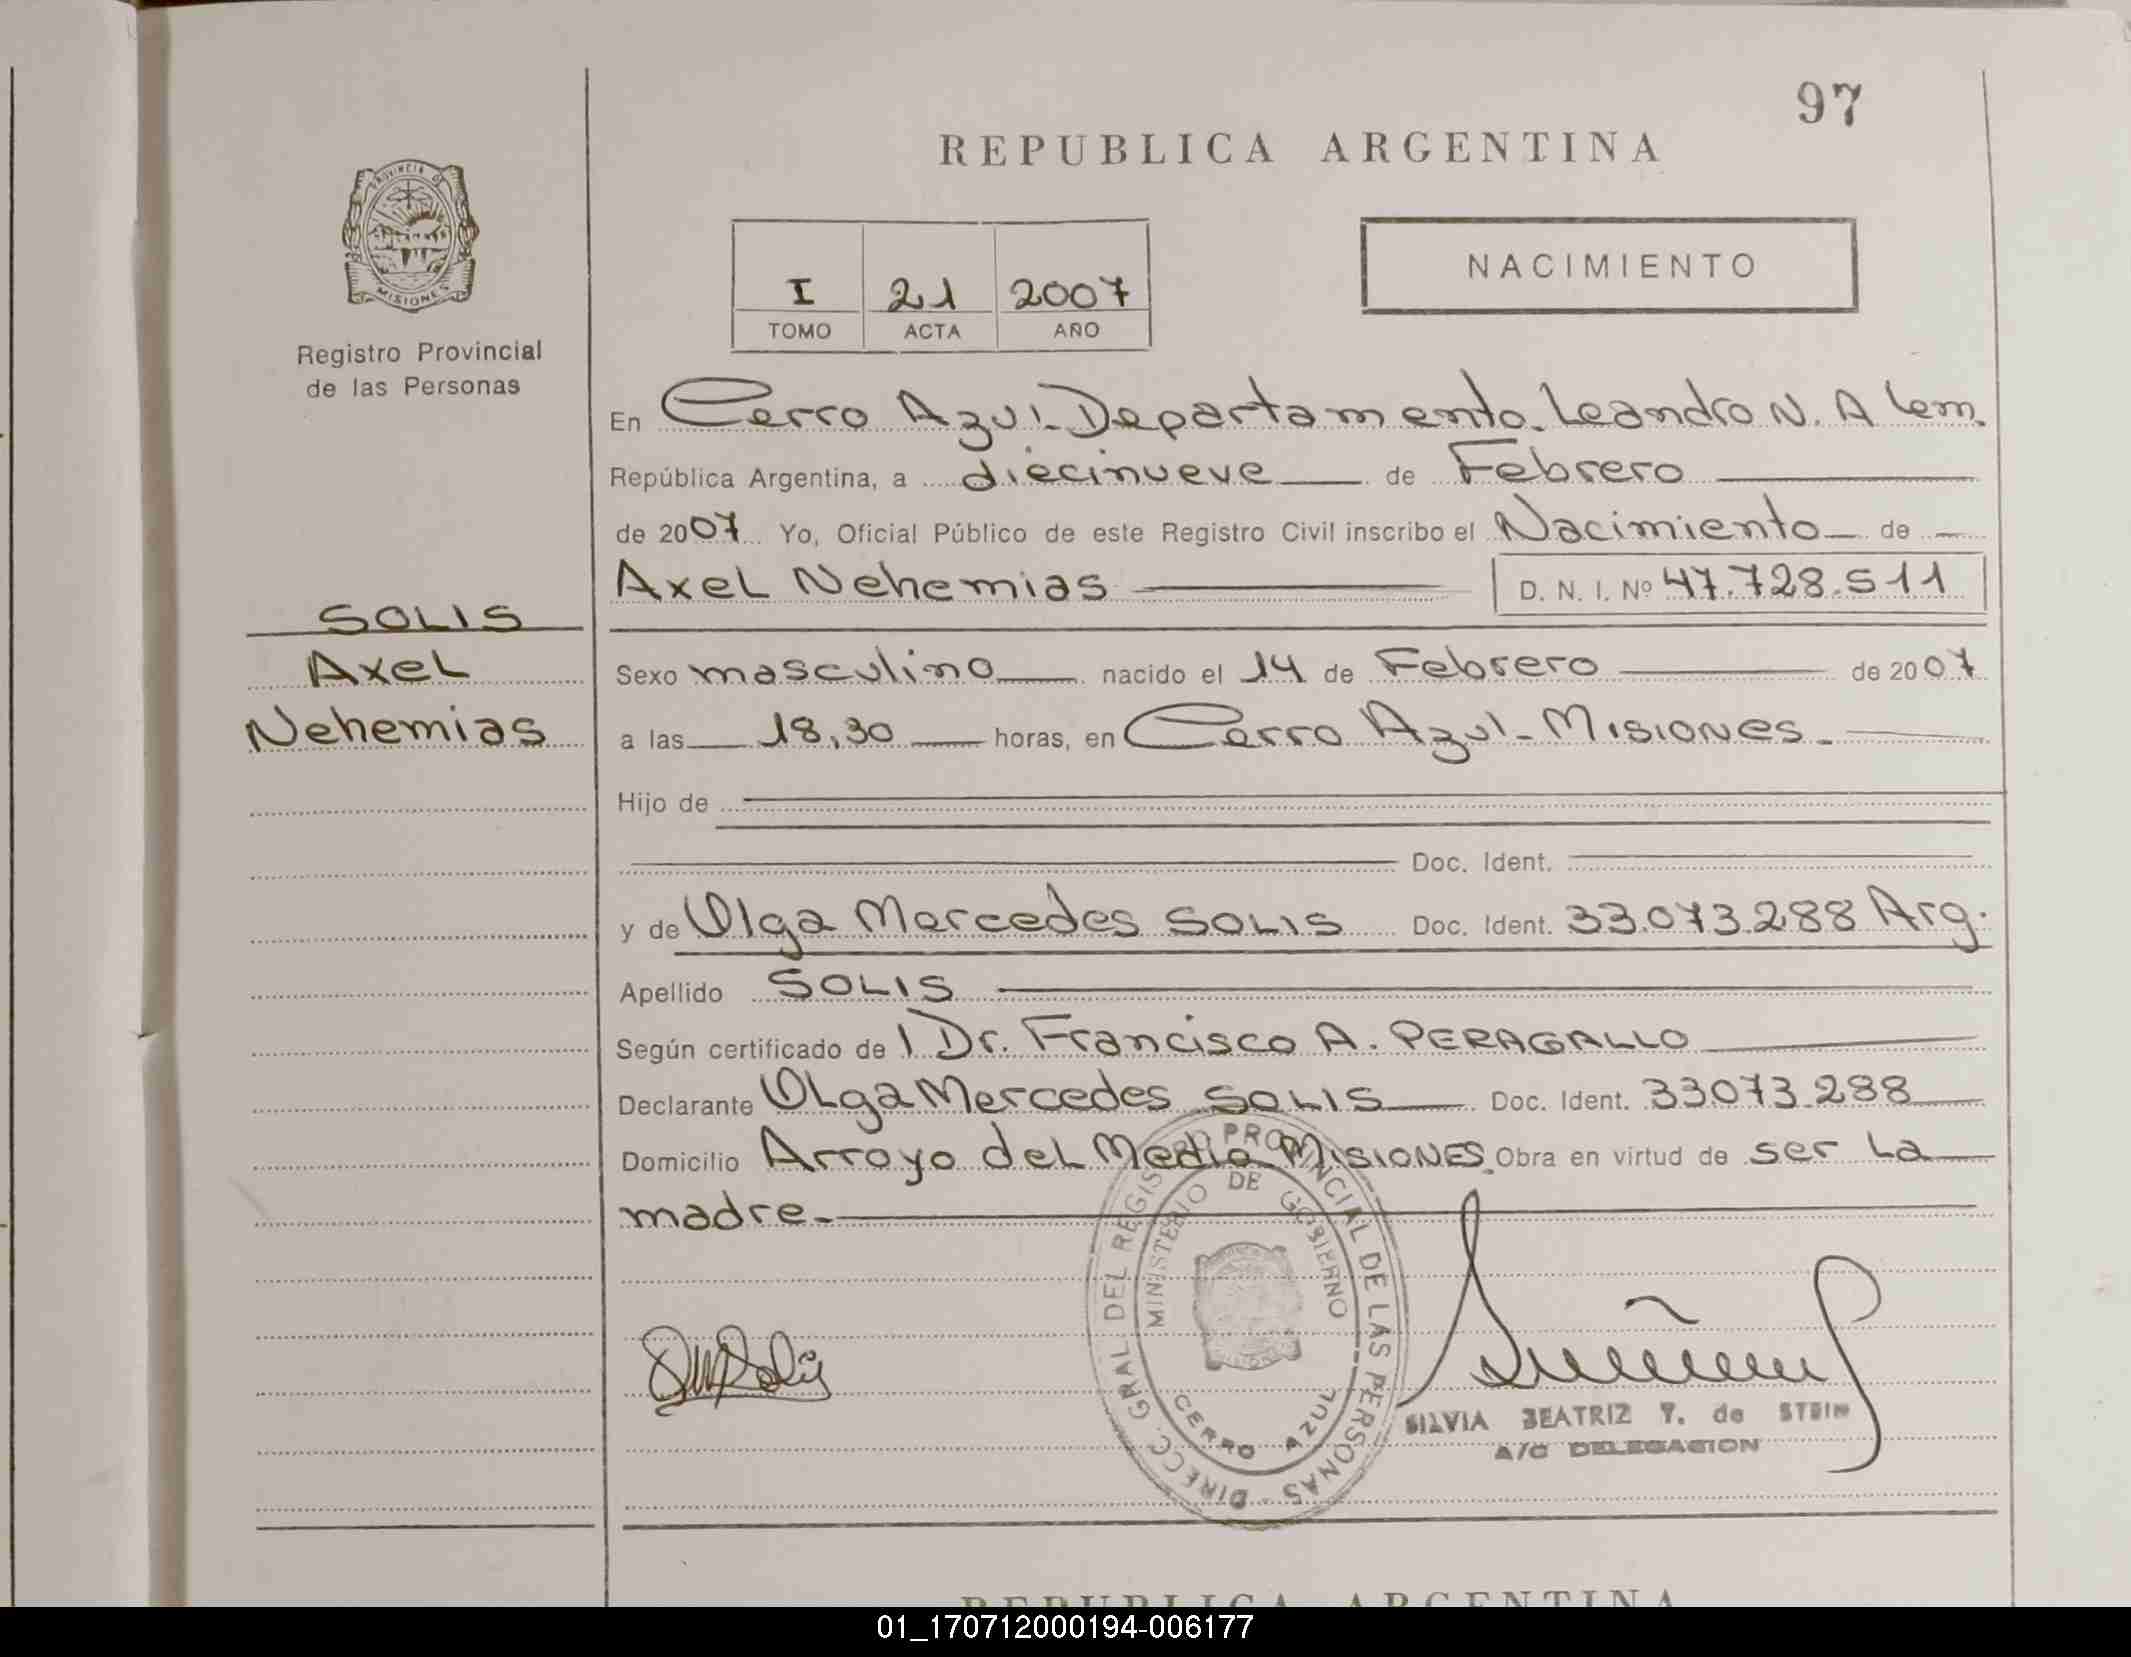 97
REPUBLICA ARGENTINA
PROVINCIA DE
MISIONES
Registro Provincial
de las Personas
NACIMIENTO
I 21 2007
TOMO ACTA AÑO
En Cerro Azul-Departamento Leandro N. Alem.
República Argentina, a diecinueve de Febrero
de 2007 Yo, Oficial Público de este Registro Civil inscribo el Nacimiento de
Axel Nehemias D. N. I. Nº 47.728.511
SOLIS
Axel
Nehemias
Sexo masculino nacido el 14 de Febrero de 2007
a las 18,30 horas, en Cerro Azul-Misiones.
Hijo de
Doc. Ident.
y de Olga Mercedes SOLIS Doc. Ident. 33.073.288 Arg.
Apellido SOLIS
Según certificado de l Dr. Francisco A. PERAGALLO
Declarante Olga Mercedes SOLIS Doc. Ident. 33.073.288
Domicilio Arroyo del Medio Misiones. Obra en virtud de ser la
madre.
DIRECC. GRAL DEL REGISTRO PROVINCIAL DE LAS PERSONAS
MINISTERIO DE GOBIERNO
CERRO AZUL
SILVIA BEATRIZ Y. de STEIN
A/C DELEGACION
REPUBLICA ARGENTINA
01_170712000194-006177